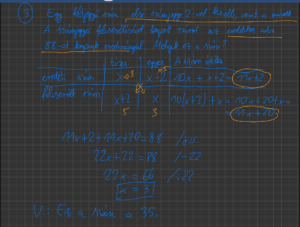 ③ Egy kétjegyű szám
A számjegyek felcserélésével kapott számot az eredetihez adva
88-at kapunk eredményül. Melyik ez a szám?
tízes egyes A szám alakja
eredeti szám x x+2 10x + x+2 = 11x+2
felcserélt szám x+2 x 10(x+2)+x = 10x+20+x=
5 3 = 11x+20
11x+2+11x+20=88 /ÖV
22x+22=88 /-22
22x=66 /:22
x=3
V: Ez a szám a 35.